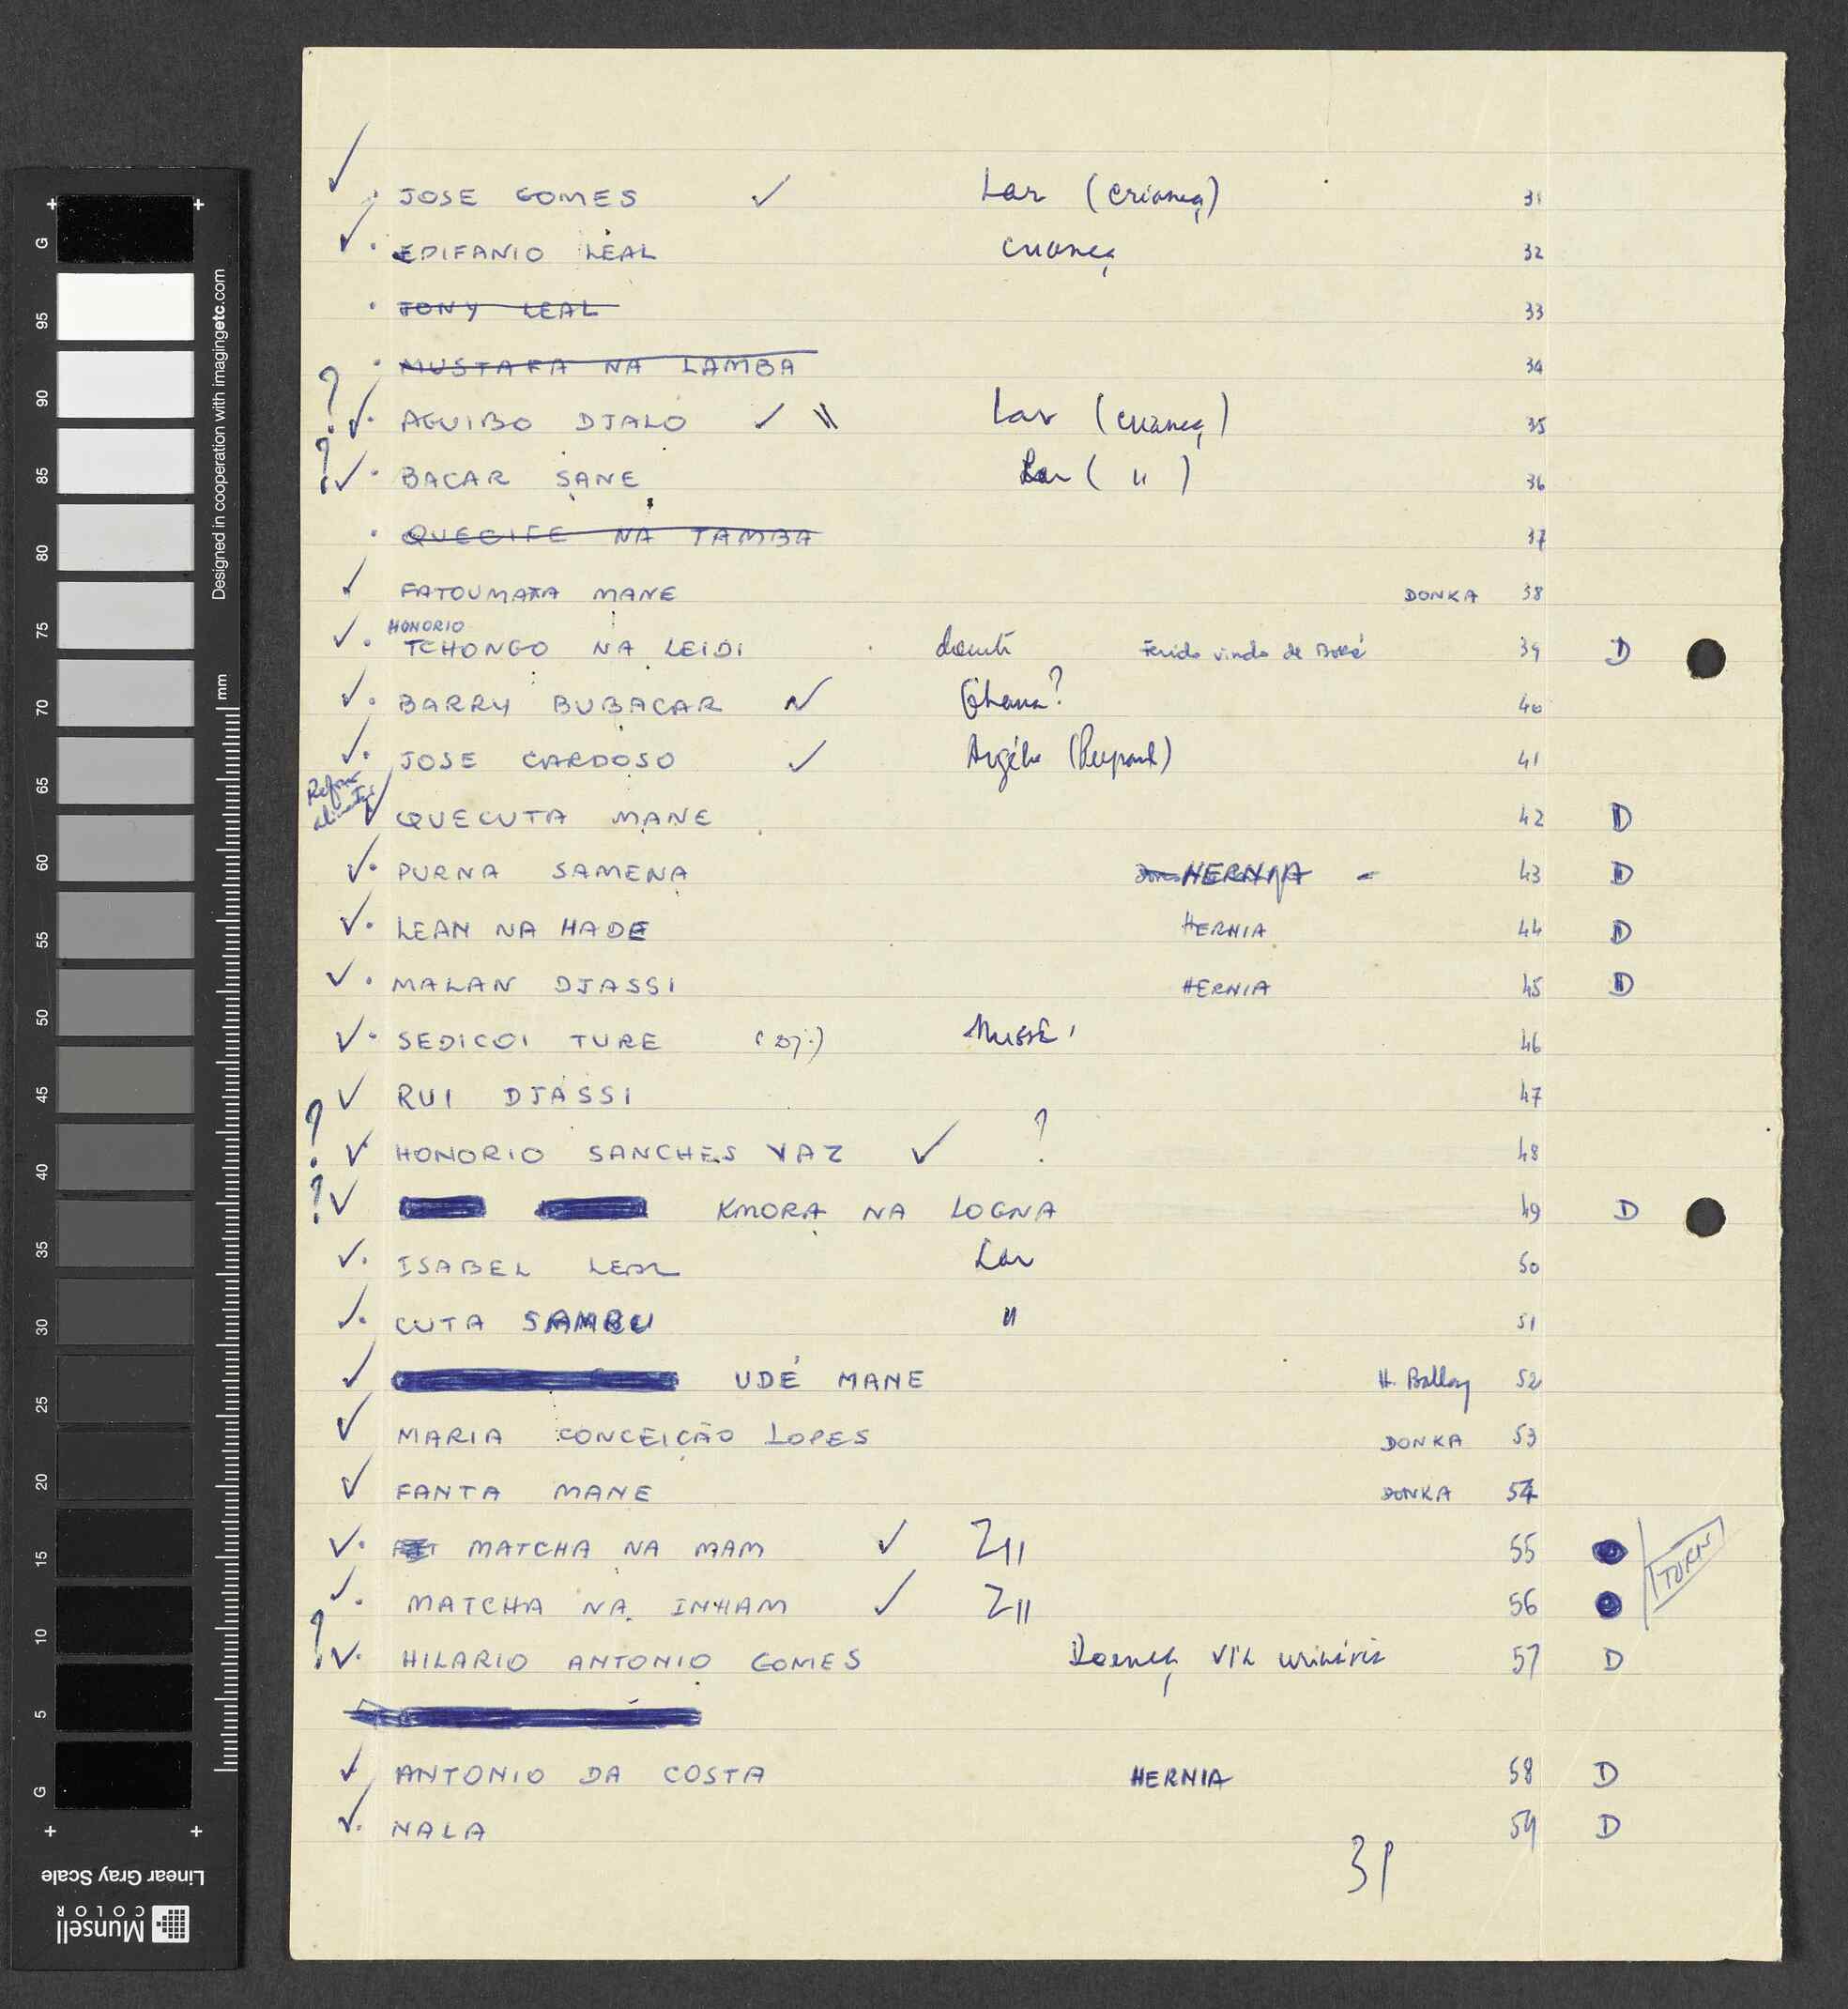 ✓ . JOSE GOMES ✓ Lar (criança) 31
✓ . EDIFANIO LEAL criança 32
. TONY LEAL 33
. MUSTAFA NA LAMBA 34
? ✓ . AGUIBO DJALO ✓ \\ Lar (criança) 35
? ✓ . BACAR SANE Lar ( " ) 36
. QUECIFE NA TAMBA 37
✓ FATOUMATA MANE DONKA 38
HONORIO
✓ . TCHONGO NA LEIDI doente Ferido vindo de Boké 39 D
✓ . BARRY BUBACAR ✓ Ghana? 40
✓ . JOSE CARDOSO ✓ Argélia 41
✓ QUECUTA MANE 42 D
✓ . PURNA SAMENA HERNIA - 43 D
✓ . LEAN NA HADE HERNIA 44 D
✓ . MALAN DJASSI HERNIA 45 D
✓ . SEDICOI TURE (Dj.) 46
✓ RUI DJASSI 47
? ✓ HONORIO SANCHES VAZ ✓ ? 48
? ✓ KMORA NA LOGNA 49 D
✓ . ISABEL LEAL Lar 50
✓ . CUTA SAMBU " 51
✓ UDÉ MANE H. Ballay 52
✓ MARIA CONCEIÇÃO LOPES DONKA 53
✓ FANTA MANE DONKA 54
✓ . MATCHA NA MAM ✓ Z11 55
TURN
✓ . MATCHA NA INHAM ✓ Z11 56
? ✓ . HILARIO ANTONIO GOMES Doença via urinária 57 D
✓ ANTONIO DA COSTA HERNIA 58 D
✓ . NALA 59 D
31
G 95 90 85 80 75 70 65 60 55 50 45 40 35 30 25 20 15 10 5 G
Designed in cooperation with imagingetc.com
mm
Linear Gray Scale
Munsell
COLOR